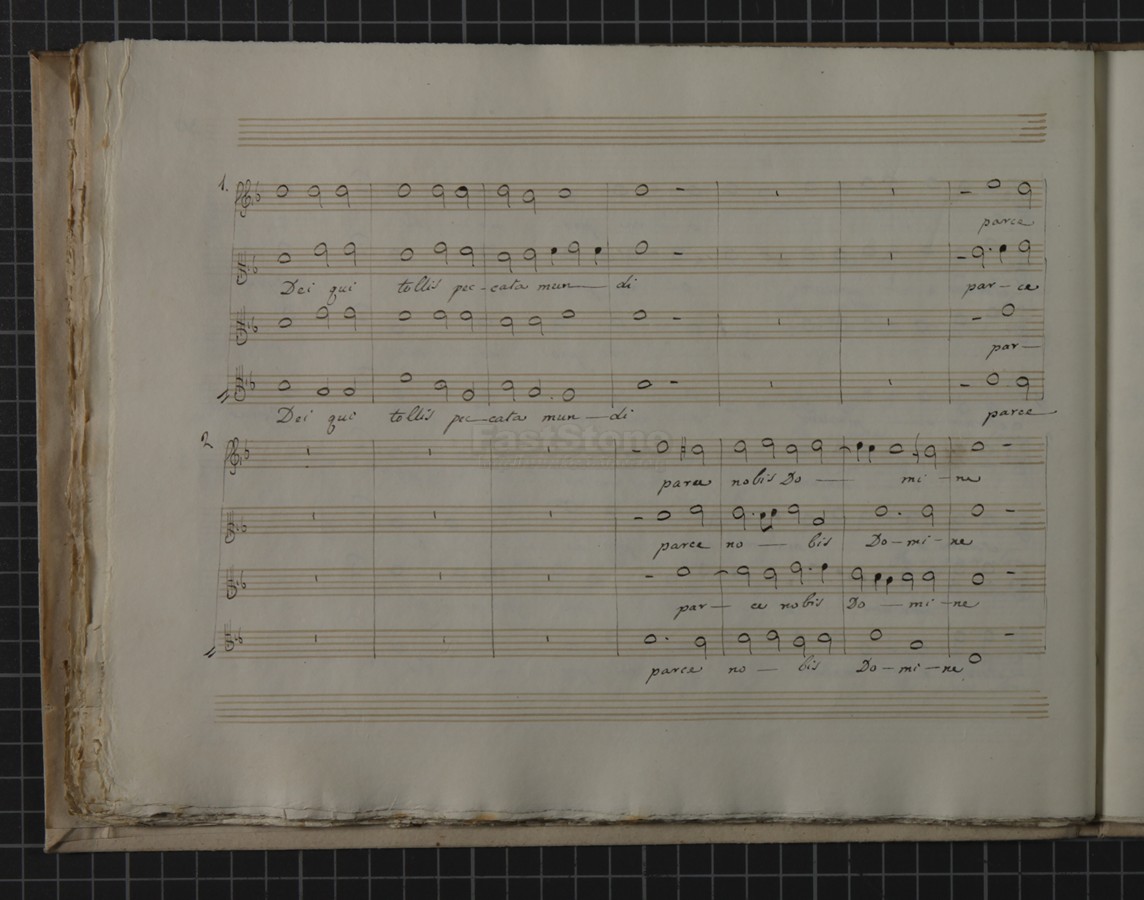 1.
parce
Dei qui tollis pec-cata mun—di
par—ce
par—
Dei qui tollis pec—cata mun—di
parce
2
parce nobis Do — mi—ne
parce no — bis Do—mi—ne
par— ce nobis Do — mi—ne
parce no — bis Do—mi—ne
FastStone